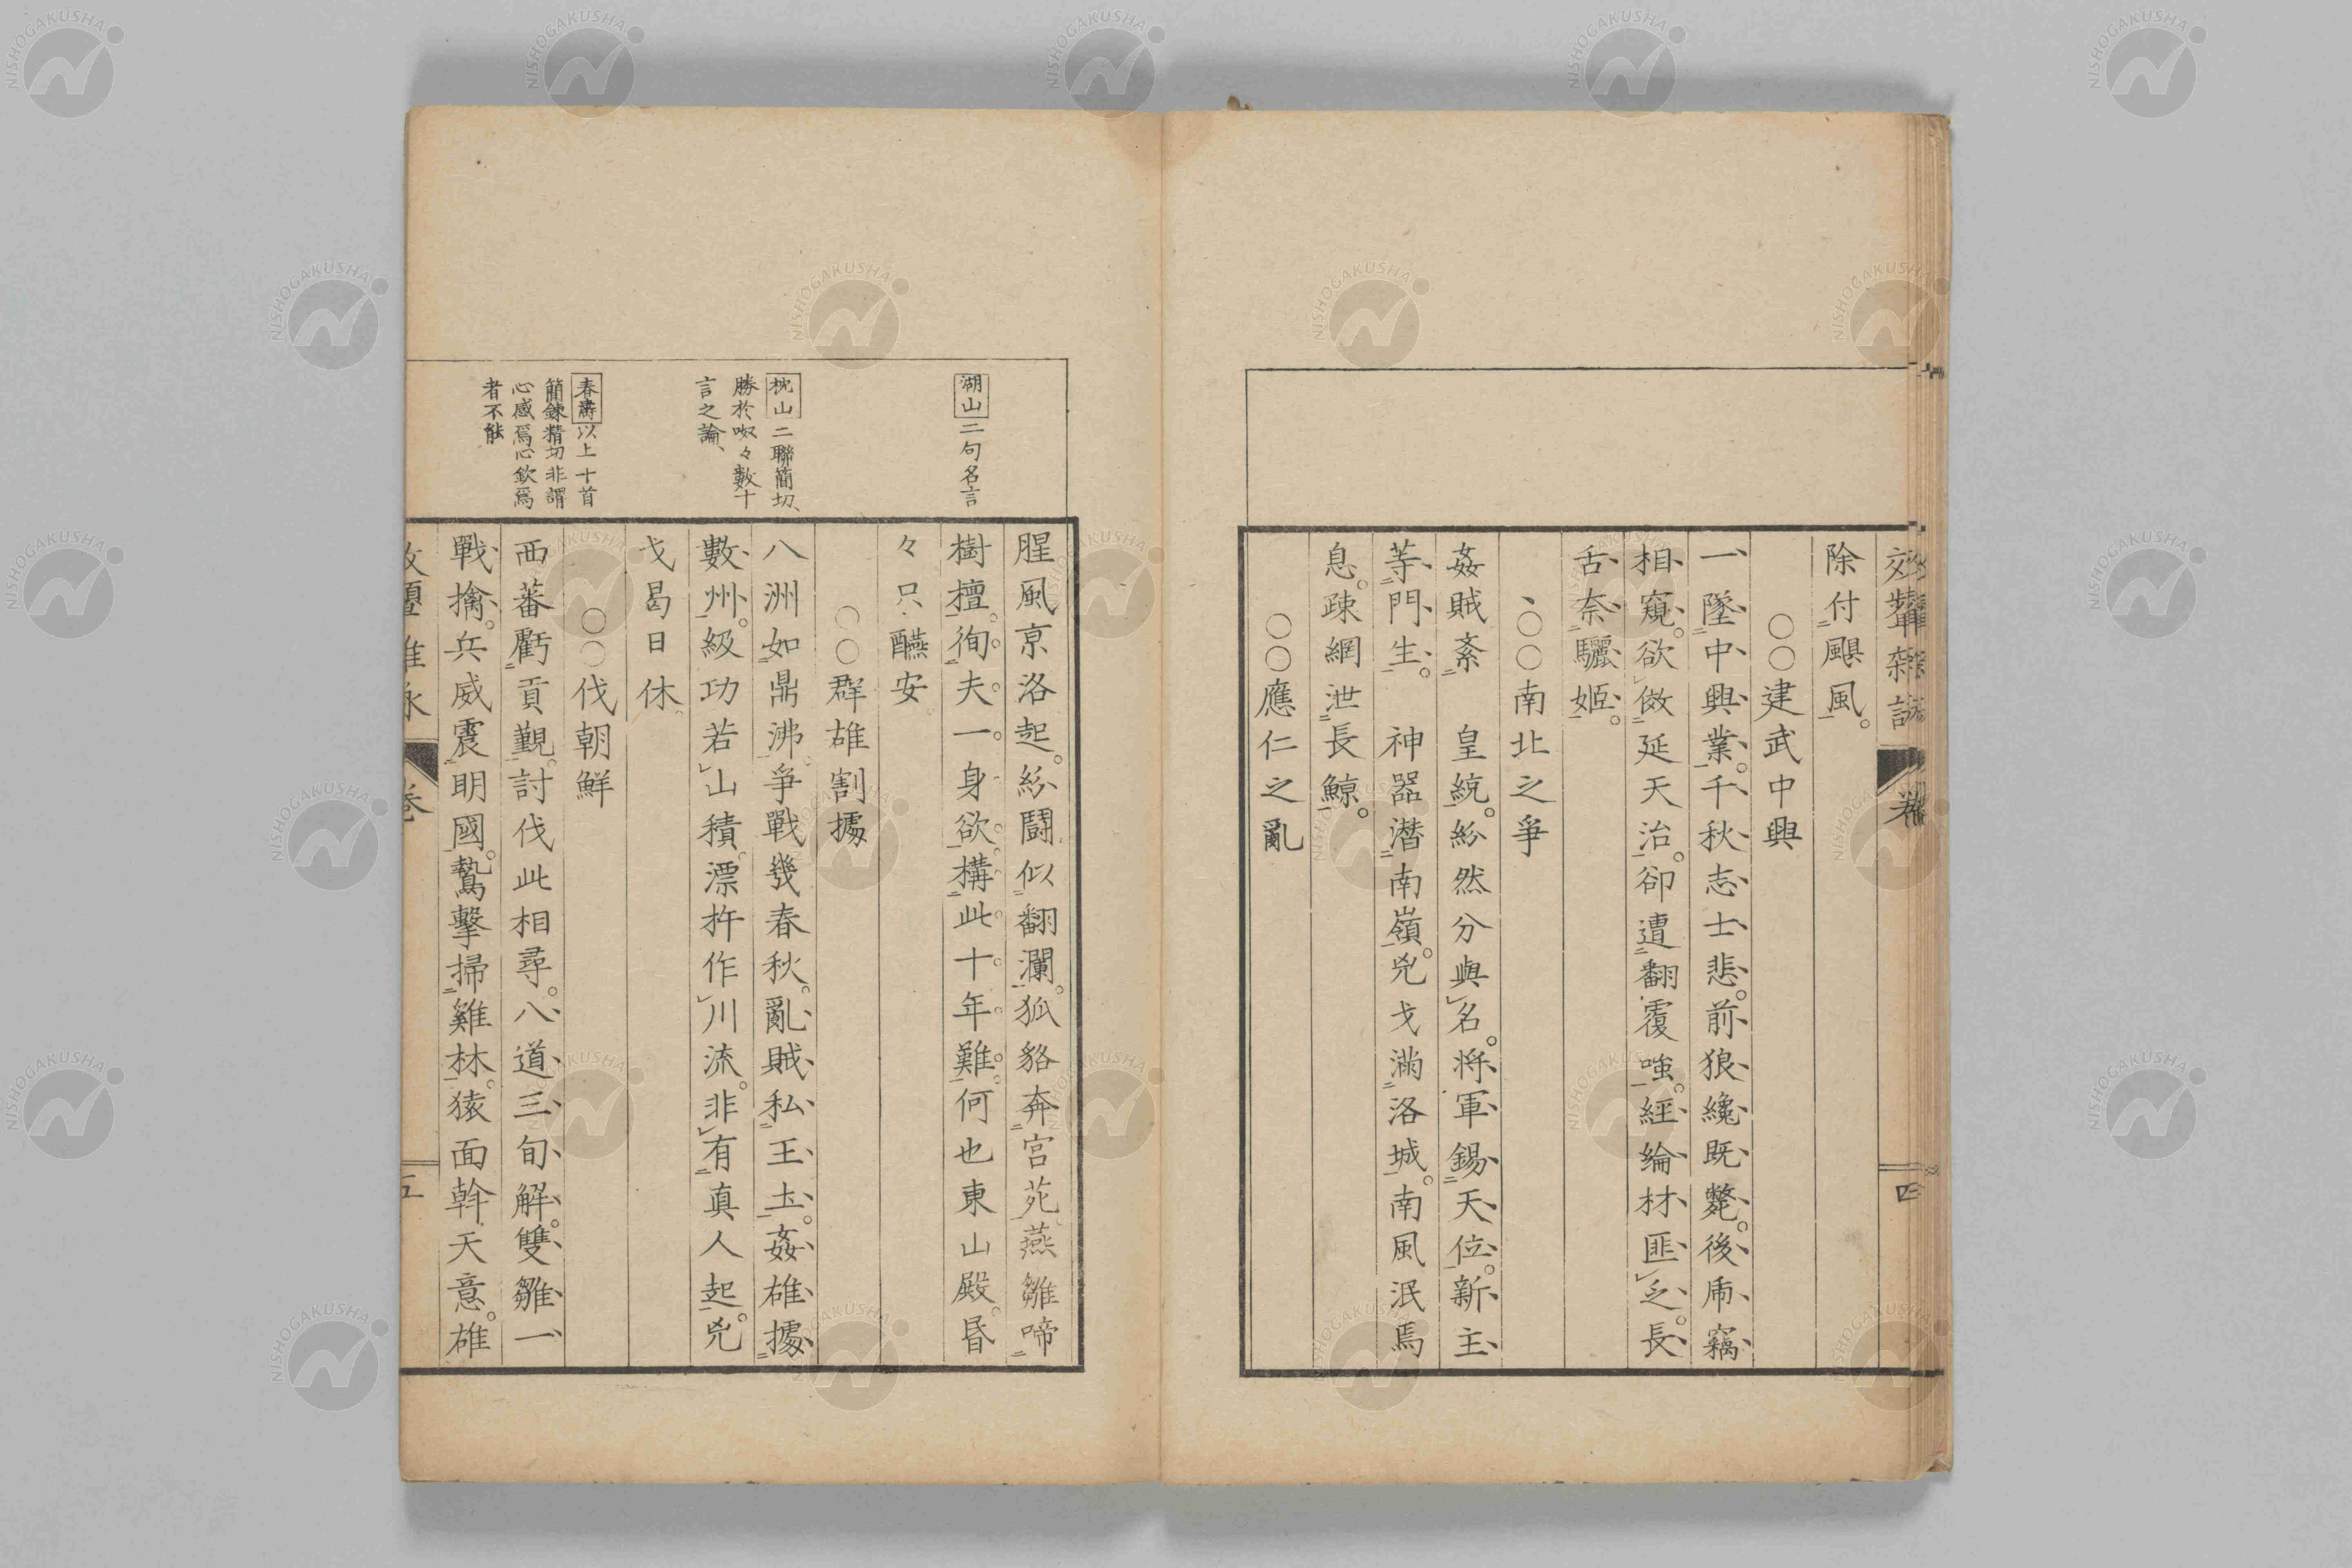 除付颶風。
○○建武中興
一墜中興業。千秋志士悲。前狼纔既斃。後虎竊
相窺。欲倣延天治。卻遭翻覆嗤。經綸材匪乏。長
舌奈驪姬。
、○○南北之爭
姦賊紊　皇統。紛然分與名。將軍錫天位。新主
等門生。　神器潜南嶺。兇戈滿洛城。南風泯焉
息。疎網泄長鯨。
○○應仁之亂
四
湖山二句名言
枕山二聯簡切、
勝於呶々數十
言之論、
春濤以上十首
簡鍊精切非謂
心感爲心欽爲
者不能
腥風京洛起。紛鬪似翻瀾。狐貉奔宮苑。燕雛啼
樹擅。徇夫一身欲。構此十年難。何也東山殿。昏
々只醼安。
○○群雄割據
八洲如鼎沸。爭戰幾春秋。亂賊私王土。姦雄據
數州。級功若山積。漂杵作川流。非有真人起。兇
戈曷日休。
○○伐朝鮮
西蕃虧貢覲。討伐此相尋。八道三旬解。雙雛一
戰擒。兵威震明國。鷙擊掃雞林。猿面斡天意。雄
卷
五
NISHOGAKUSHA